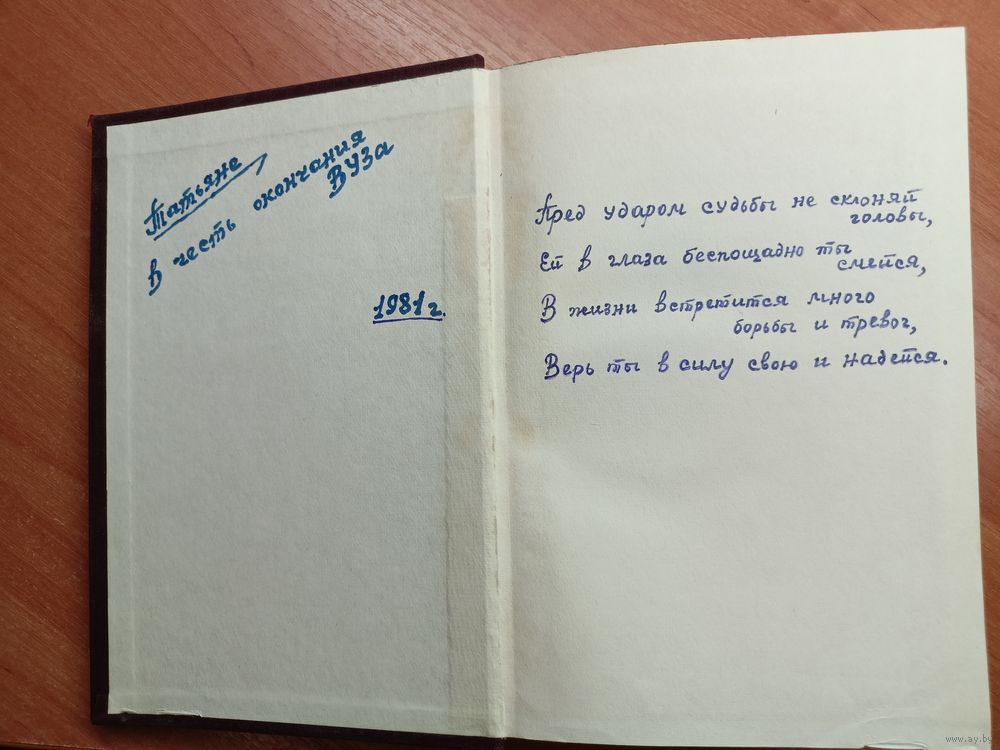 Татьяне
в честь окончания
ВУЗа
1981 г.
Пред ударом судьбы не склоняй
головы,
Ей в глаза беспощадно ты
смейся,
В жизни встретится много
борьбы и тревог,
Верь ты в силу свою и надейся.
www.ay.by